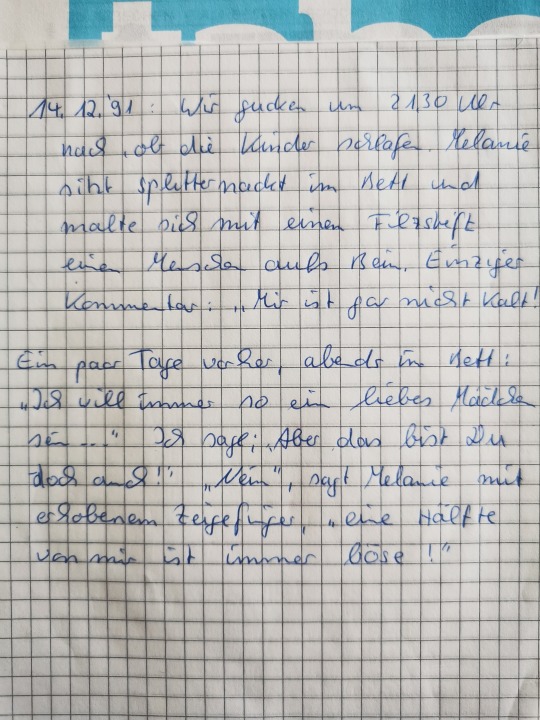 14.12.'91: Wir gucken um 21.30 Uhr
nach, ob die Kinder schlafen. Melanie
sitzt splitternackt im Bett und
malte sich mit einen Filzstift
einen Menschen aufs Bein. Einziger
Kommentar: „Mir ist gar nicht kalt!
Ein paar Tage vorher, abends im Bett:
„Ich will immer so ein liebes Mädchen
sein ...." Ich sage: „Aber das bist Du
doch auch!" „Nein", sagt Melanie mit
erhobenem Zeigefinger, „eine Hälfte
von mir ist immer böse!"